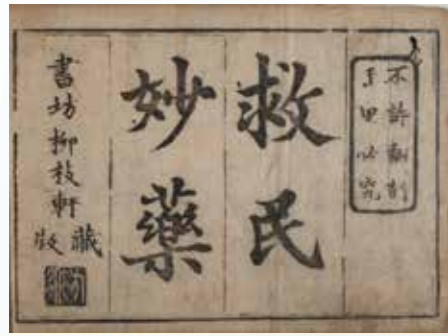 不許翻刻
千里必究
救民
妙藥
書坊柳枝軒藏版